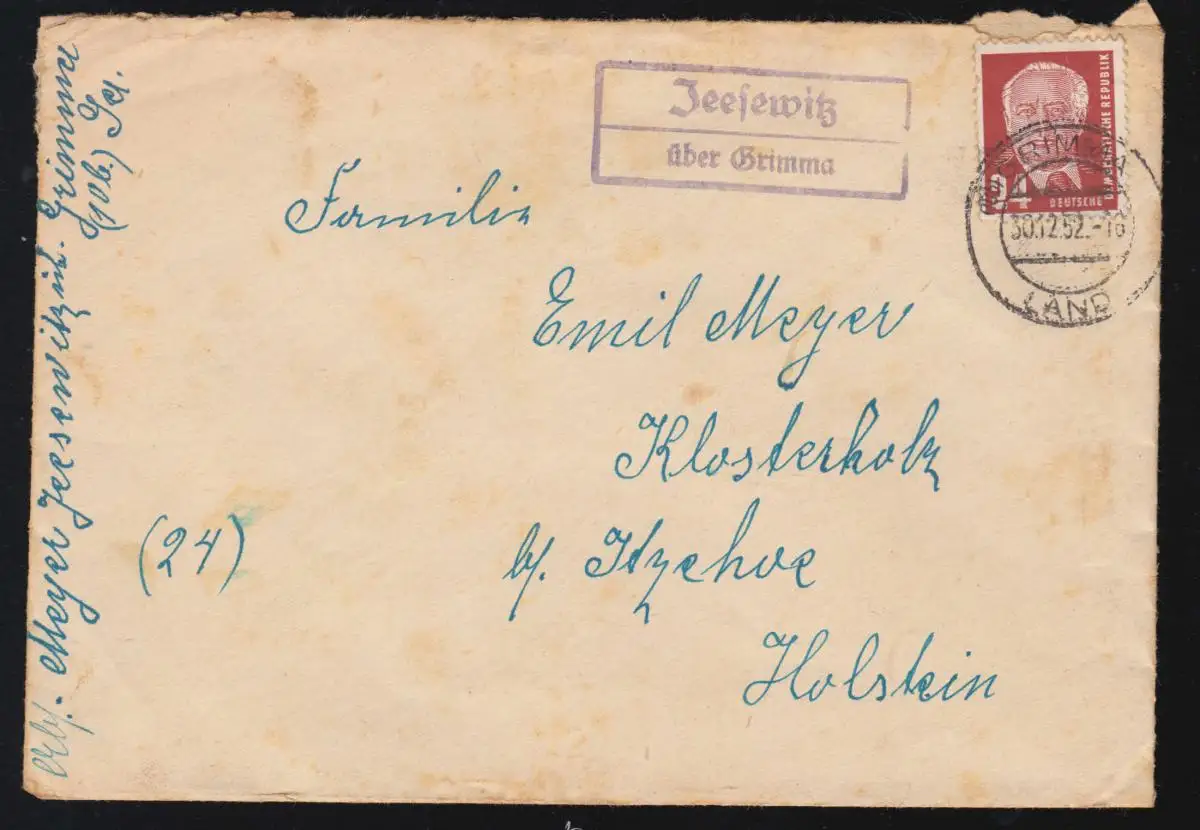 Jeesewitz
über Grimma
24
DEUTSCHE DEMOKRATISCHE REPUBLIK
GRIMMA
30.12.52.-18
LAND
Familie
Emil Meyer
Klosterholz
(24) b/. Itzehoe
Holstein
Meyer Jeesewitz üb. Grimma
(10b) Sa.